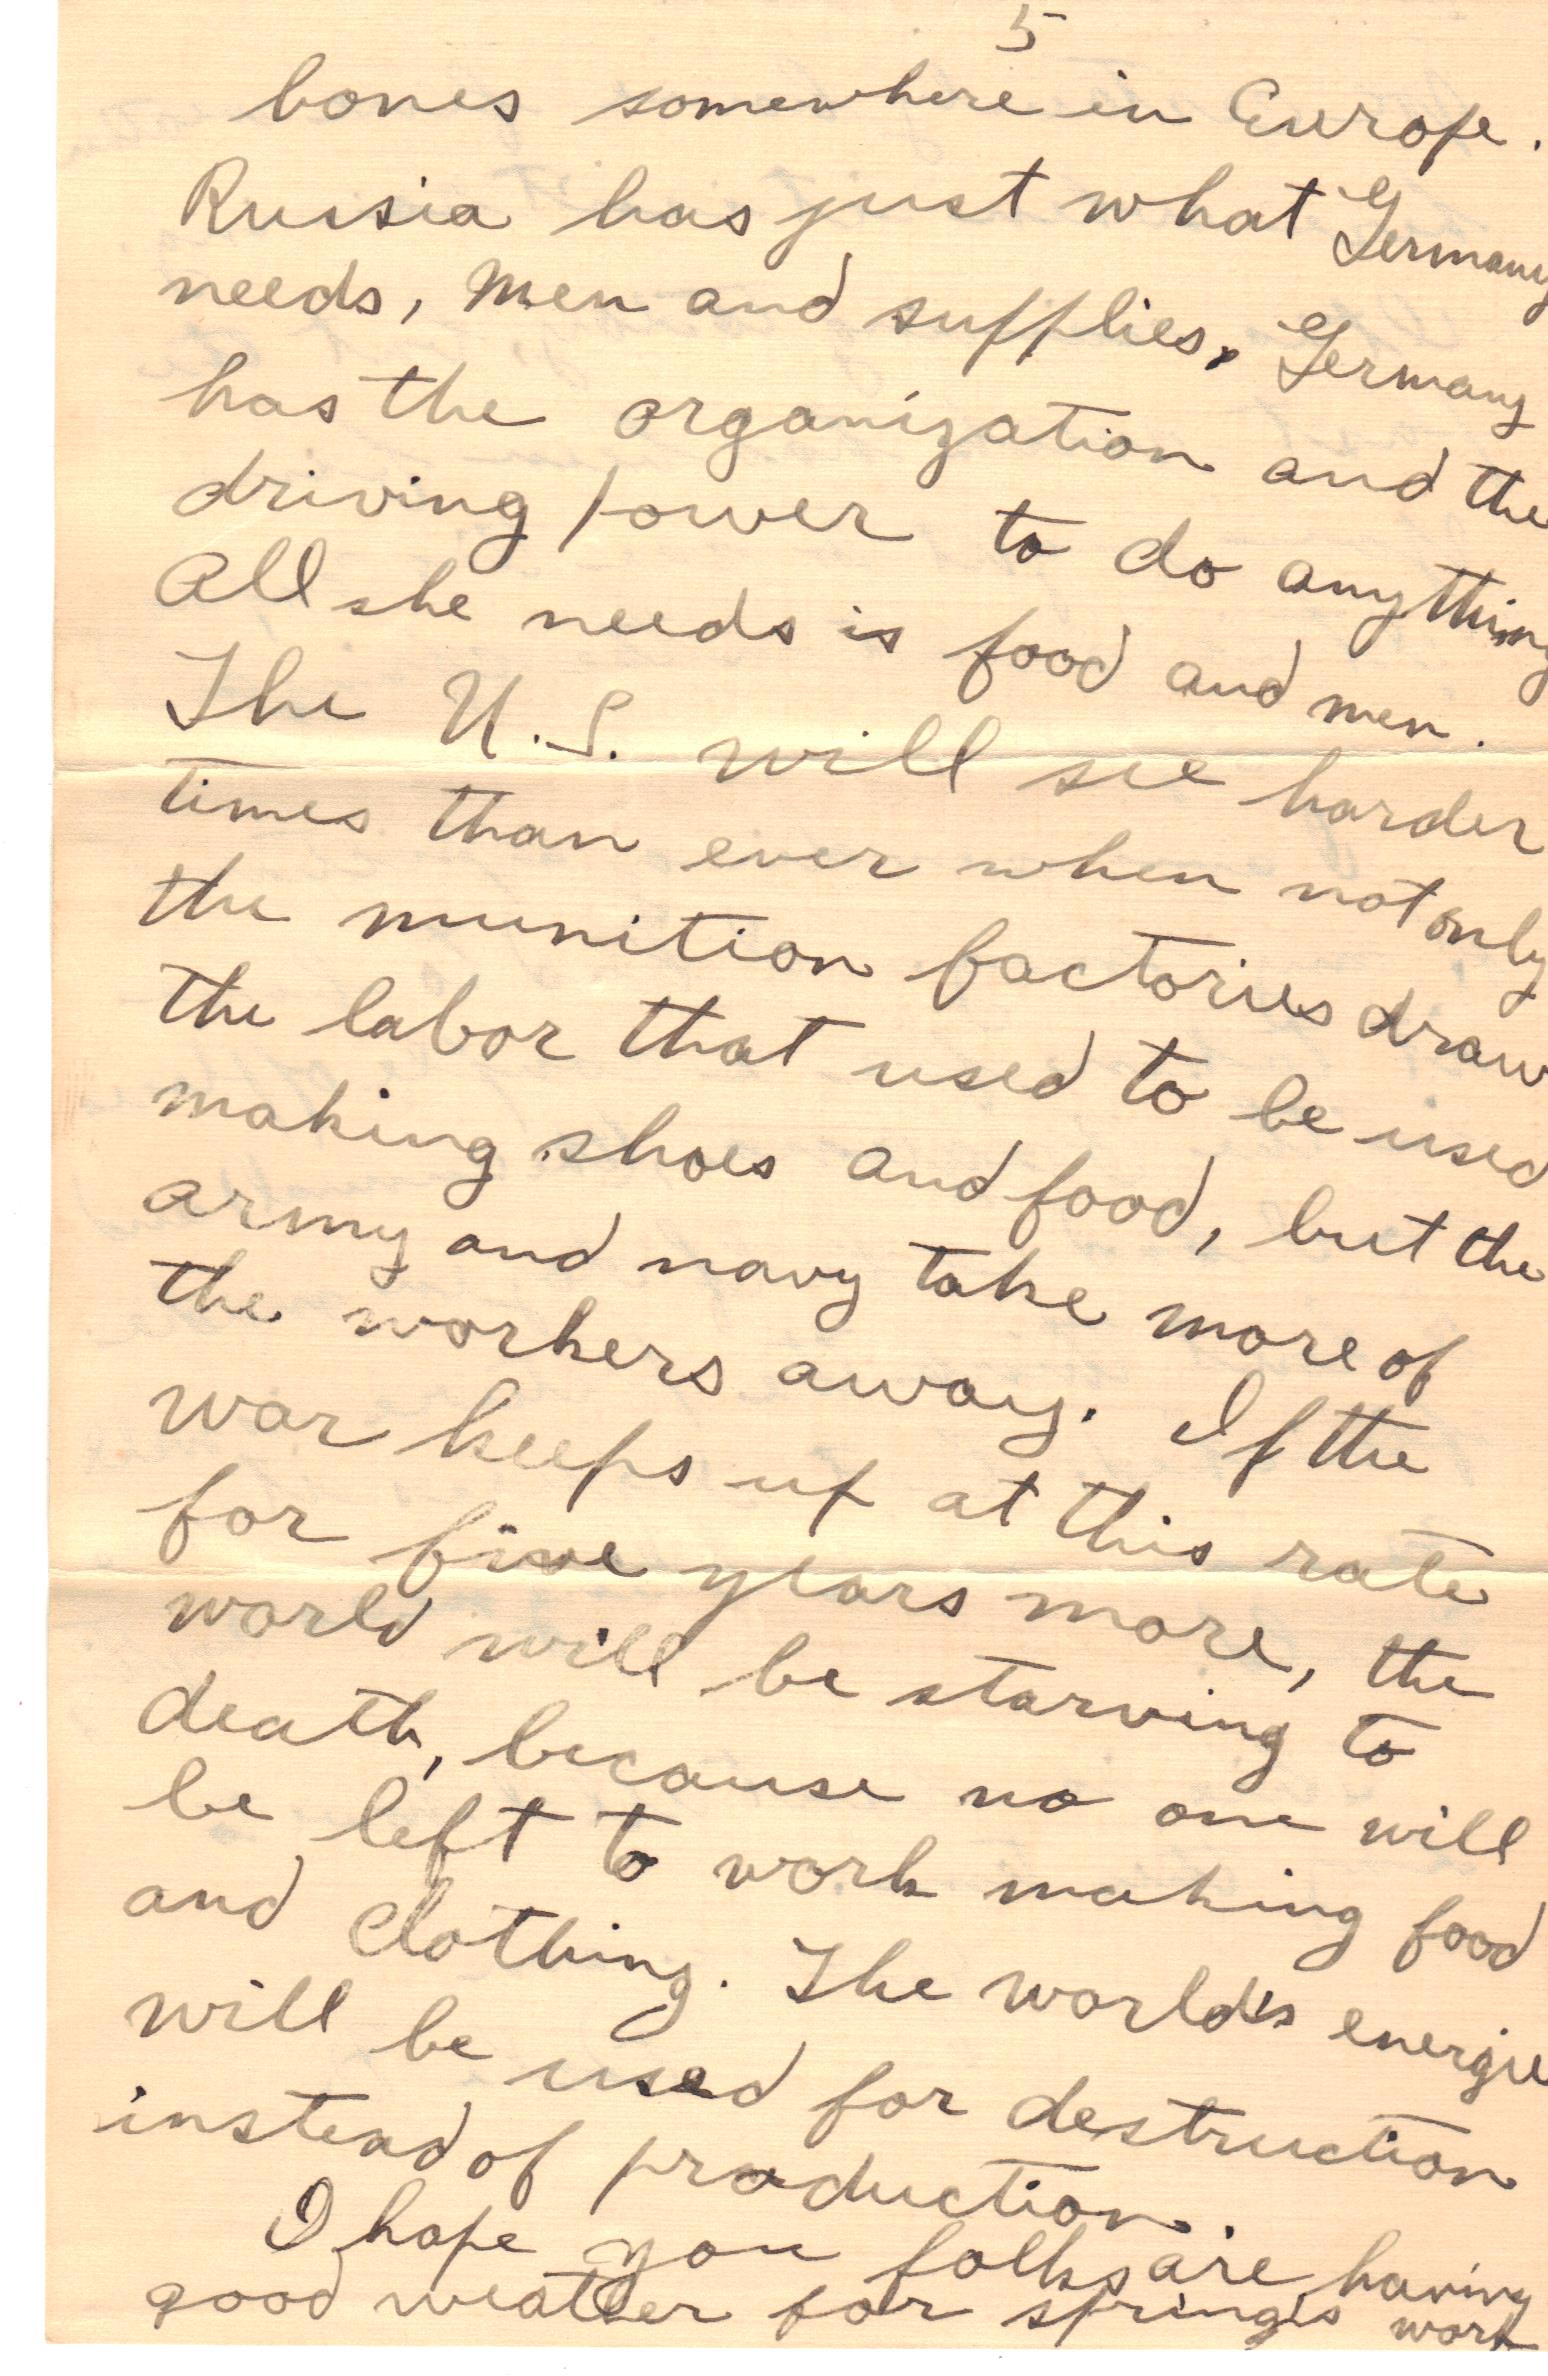 5
bones somewhere in Europe.
Russia has just what Germany
needs, men and supplies, Germany
has the organization and the
driving power to do anything
All she needs is food and men.
The U.S. will see harder
times than ever when not only
the munition factories draw
the labor that used to be used
making shoes and food, but the
army and navy take more of
the workers away. If the
war keeps up at this rate
for five years more, the
world will be starving to
death, because no one will
be left to work making food
and clothing. The world's energie
will be used for destruction
instead of production.
I hope you folks are having
good weather for spring's work